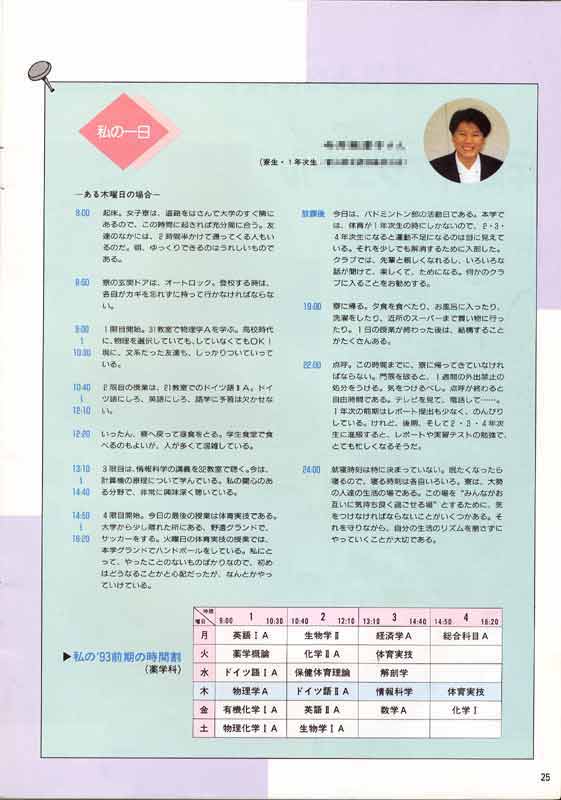 私の一日
(寮生・1年次生
―ある木曜日の場合―
8:00 起床。女子寮は、道路をはさんで大学のすぐ隣に
あるので、この時間に起きれば充分間に合う。友
達のなかには、2時間半かけて通ってくる人もい
るのだ。朝、ゆっくりできるのはうれしいもので
ある。
8:50 寮の玄関ドアは、オートロック。登校する時は、
各自がカギを忘れずに持って行かなければならな
い。
9:00 1限目開始。31教室で物理学Aを学ぶ。高校時代
に、物理を選択していても、していなくてもOK!
10:30 現に、文系だった友達も、しっかりついていって
いる。
10:40 2限目の授業は、21教室でのドイツ語ⅡA。ドイ
ツ語にしろ、英語にしろ、語学に予習は欠かせな
12:10 い。
12:20 いったん、寮へ戻って昼食をとる。学生食堂で食
べるのもよいが、人が多くて混雑している。
13:10 3限目は、情報科学の講義を32教室で聴く。今は、
計算機の原理について学んでいる。私の関心のあ
14:40 る分野で、非常に興味深く聴いている。
14:50 4限目開始。今日の最後の授業は体育実技である。
大学から少し離れた所にある、野邉グランドで、
16:20 サッカーをする。火曜日の体育実技の授業では、
本学グランドでハンドボールをしている。私にと
って、やったことのないものばかりなので、初め
はどうなることかと心配だったが、なんとかやっ
ていけている。
放課後 今日は、バドミントン部の活動日である。本学で
は、体育が1年次生の時にしかないので、2・3・
4年次生になると運動不足になるのは目に見えて
いる。それを少しでも解消するために入部した。
クラブでは、先輩と親しくなれるし、いろいろな
話が聞けて、楽しくて、ためになる。何かのクラ
ブに入ることをお勧めする。
19:00 寮に帰る。夕食を食べたり、お風呂に入ったり、
洗濯をしたり、近所のスーパーまで買い物に行っ
たり。1日の授業が終わった後は、結構すること
がたくさんある。
22:00 点呼。この時間までに、寮に帰ってきていなけれ
ばならない。門限を破ると、1週間の外出禁止の
処分をうける。気をつけるべし。点呼が終わると
自由時間である。テレビを見て、電話して……。
1年次の前期はレポート提出も少なく、のんびり
している。けれど、後期、そして2・3・4年次
生に進級すると、レポートや実習テストの勉強で、
とても忙しくなるそうだ。
24:00 就寝時刻は特に決まっていない。眠たくなったら
寝るので、寝る時刻は各自いろいろ。寮は、大勢
の人達の生活の場である。この場を“みんながお
互いに気持ち良く過ごせる場”とするために、気
をつけなければならないことがいくつかある。そ
れを守りながら、自分の生活のリズムを崩さずに
やっていくことが大切である。
▶私の'93前期の時間割
(薬学科)
時限 曜日 9:00 1 10:30 10:40 2 12:10 13:10 3 14:40 14:50 4 16:20
月 英語ⅠA 生物学Ⅱ 経済学A 総合科目A
火 薬学概論 化学ⅡA 体育実技
水 ドイツ語ⅠA 保健体育理論 解剖学
木 物理学A ドイツ語ⅡA 情報科学 体育実技
金 有機化学ⅠA 英語ⅡA 数学A 化学Ⅰ
土 物理化学ⅠA 生物学ⅠA
25